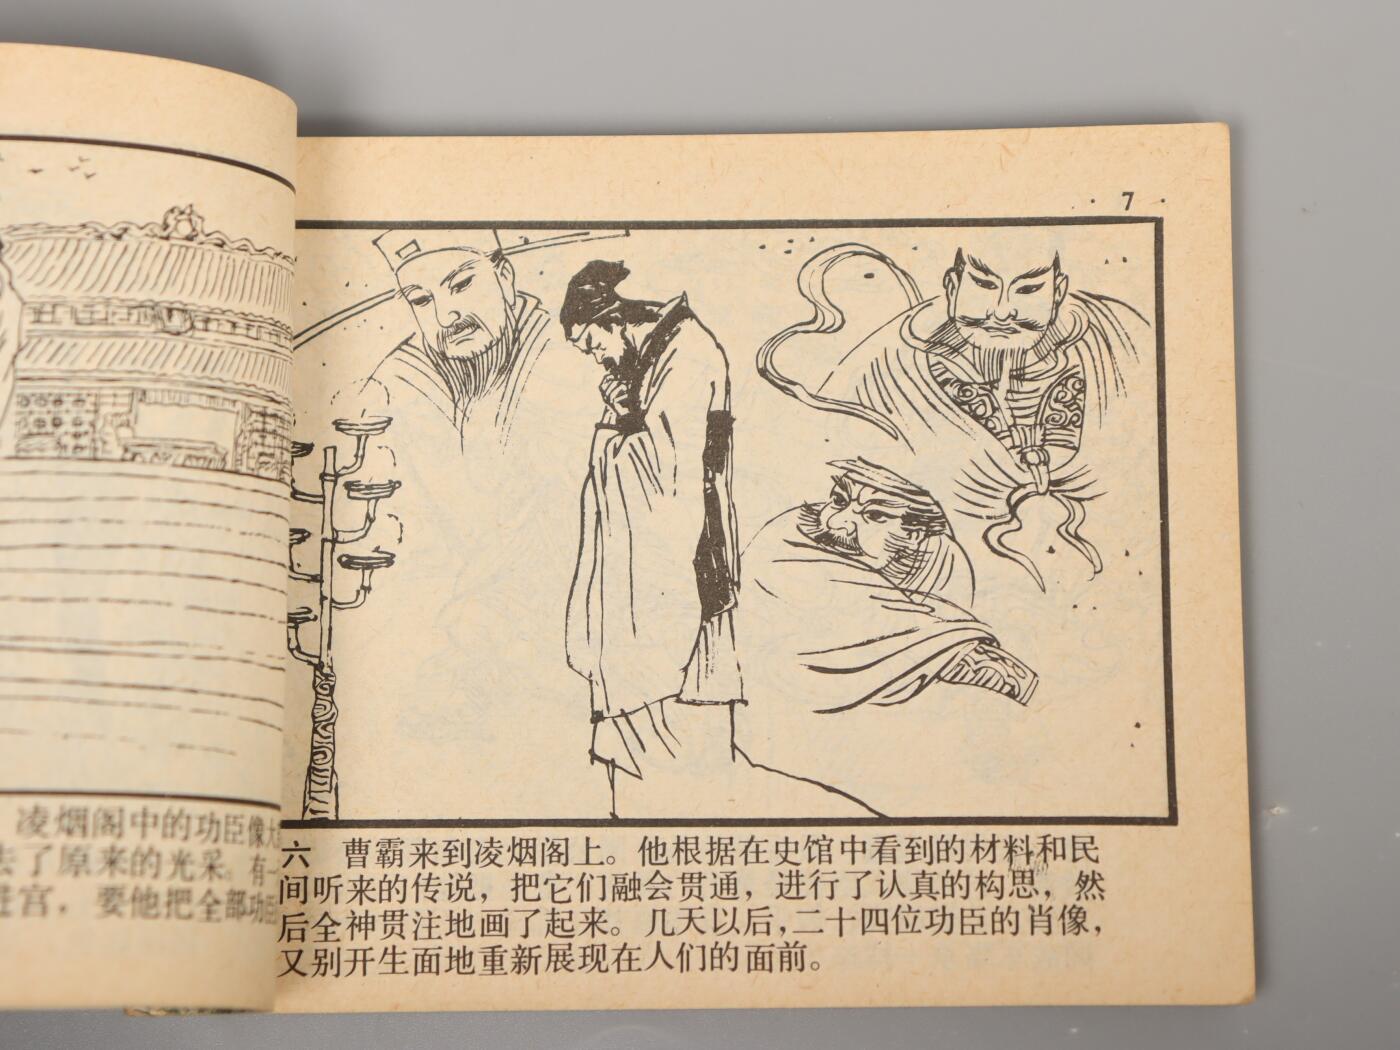 凌烟阁中的功臣像大
去了原来的光采。有一
进宫，要他把全部功臣
7
六 曹霸来到凌烟阁上。他根据在史馆中看到的材料和民
间听来的传说，把它们融会贯通，进行了认真的构思，然
后全神贯注地画了起来。几天以后，二十四位功臣的肖像，
又别开生面地重新展现在人们的面前。